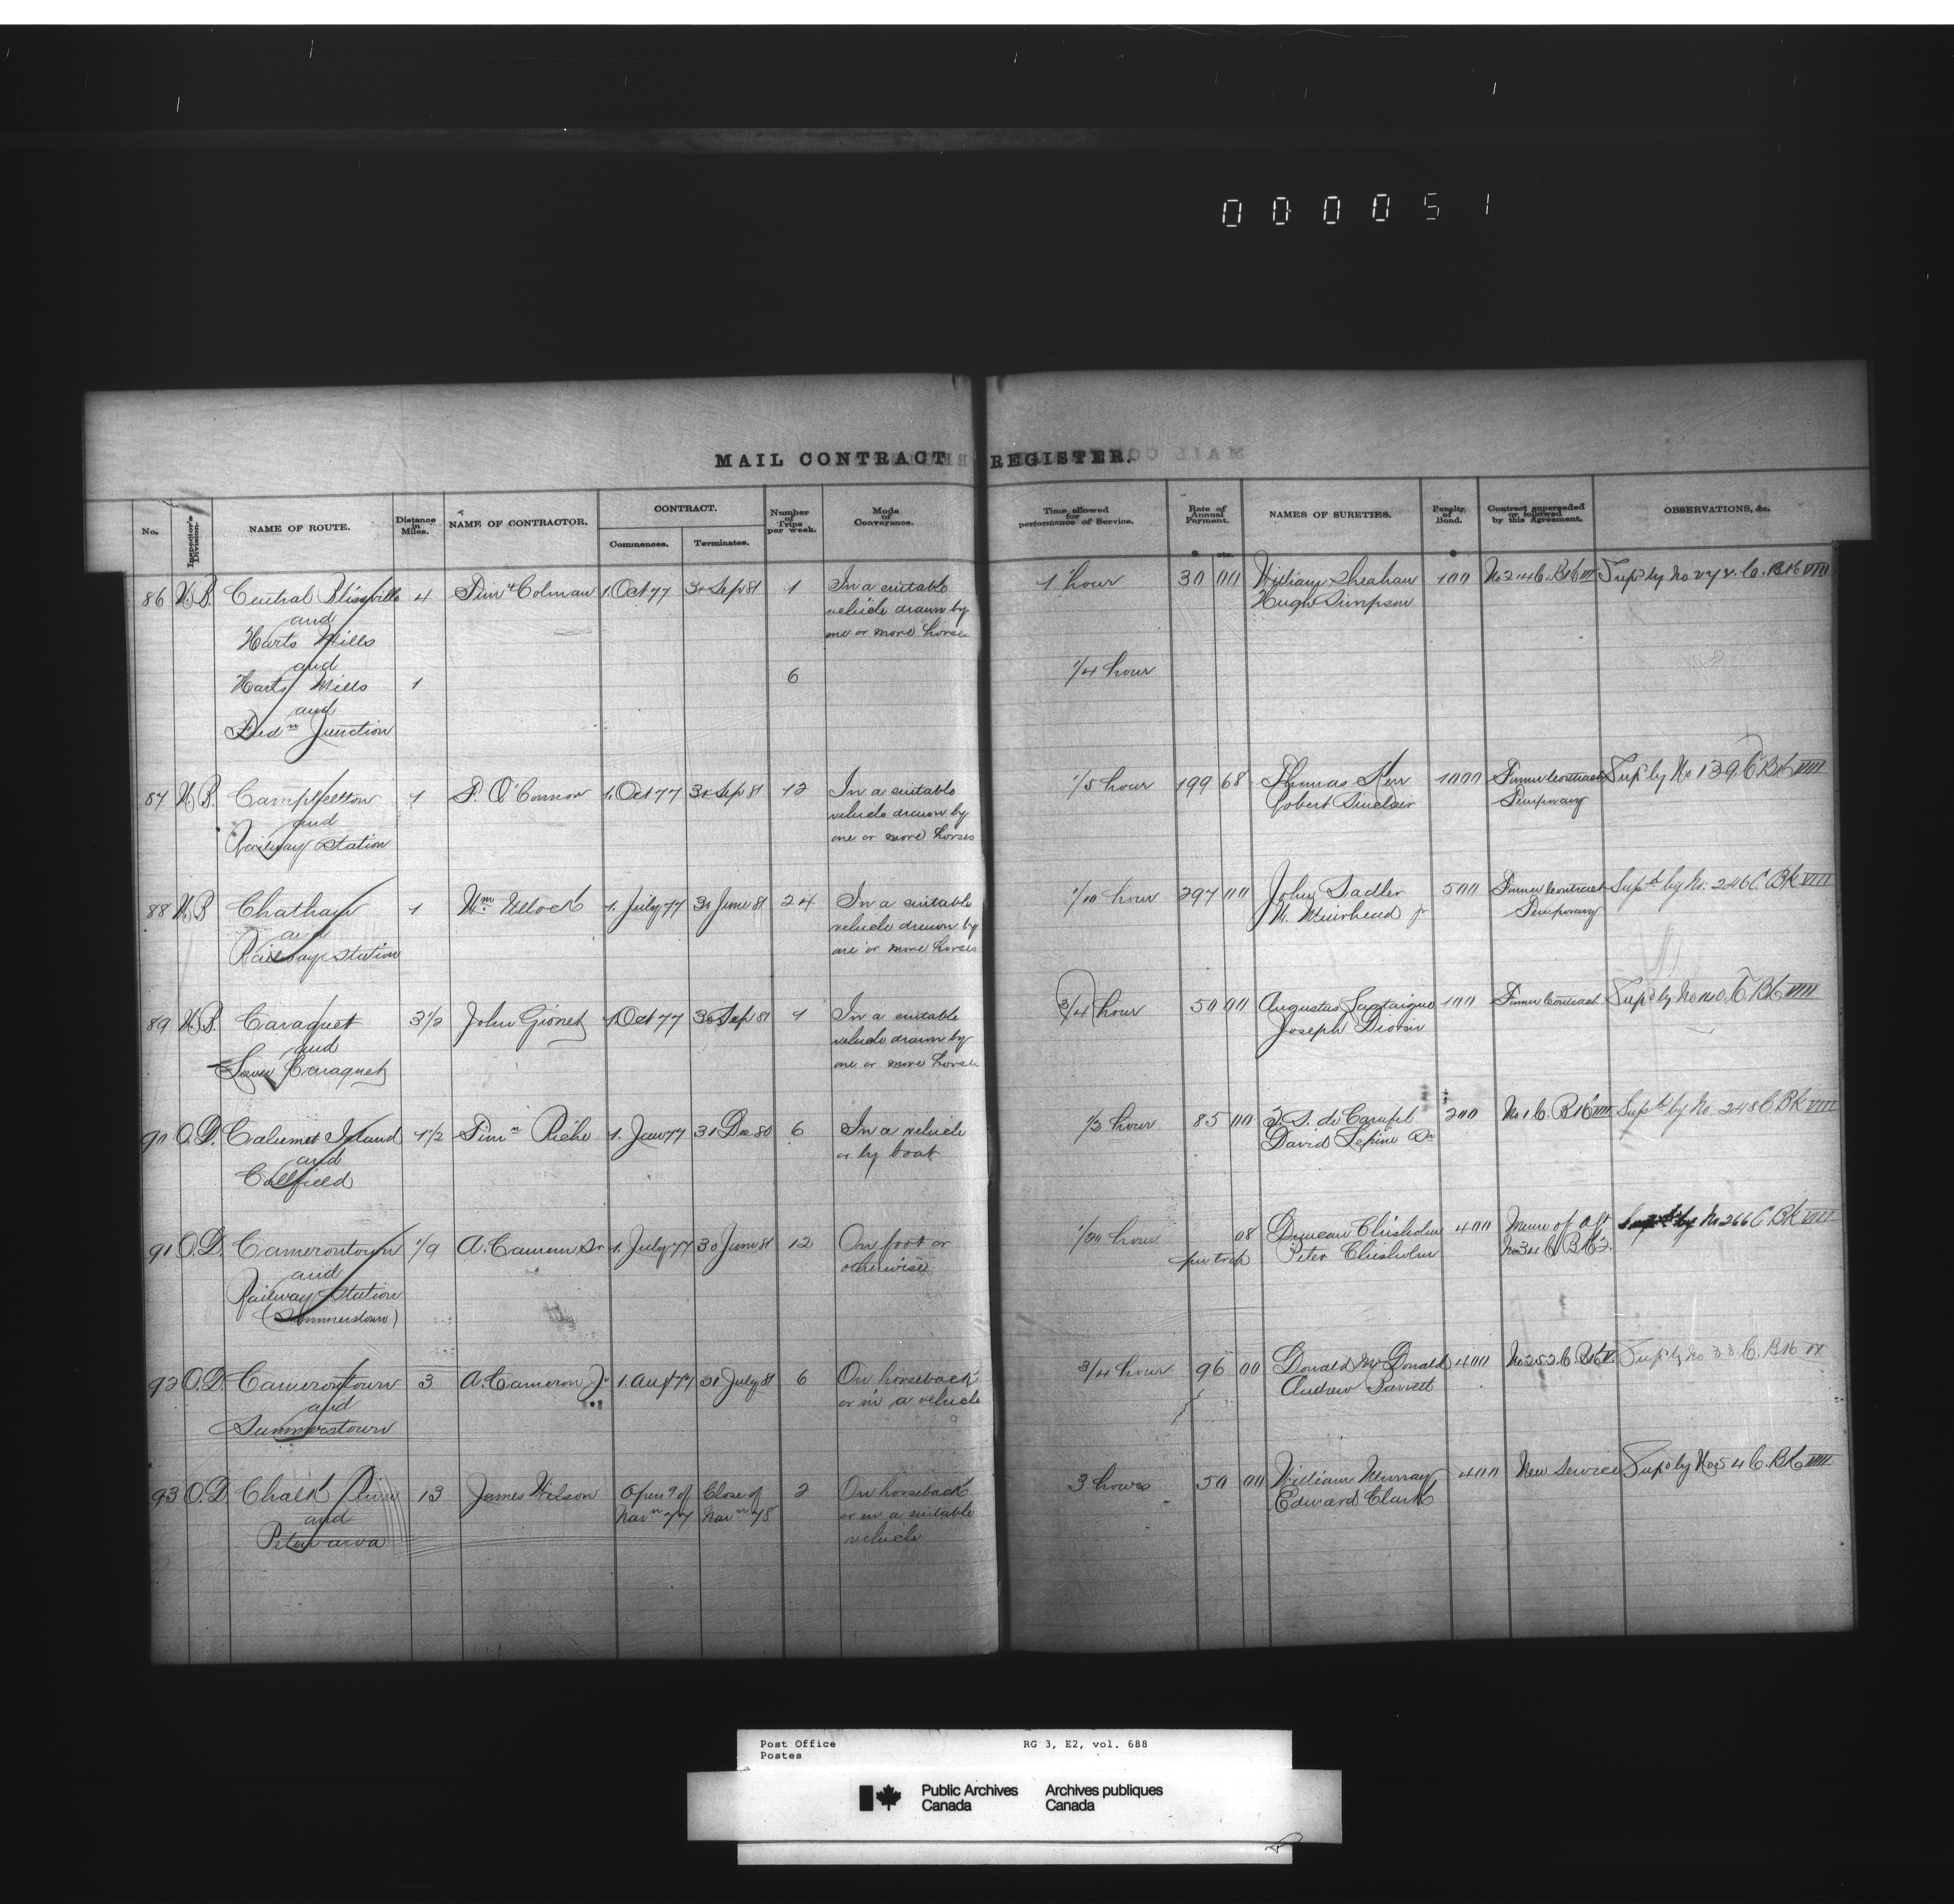 000051
MAIL CONTRACT REGISTER.
No. Inspector's Division. NAME OF ROUTE. Distance in Miles. NAME OF CONTRACTOR. CONTRACT. Commences. Terminates. Number of Trips per week. Mode of Conveyance. Time allowed for performance of Service. Rate of Annual Payment. $ cts. NAMES OF SURETIES. Penalty of Bond. $ Contract superseded or followed by this Agreement. OBSERVATIONS, &c.
86 N.B. Central Blissville 4 Timy Colman 1. Oct 77 30 Sep 81 1 In a suitable 1 hour 30 00 William Sheahan 100 No 24 C. Bk VI Supd by No 272. C. Bk VIII
and vehicle drawn by Hugh Simpson
Harts Mills one or more horse
and
Harts Mills 1 6 1/4 hour
and
Fredn Junction
87 N.B. Campbellton 1 P. O'Connor 1. Oct 77 30 Sep 81 12 In a suitable 1/5 hour 199 68 Thomas Kerr 1000 Former Contract Supd by No 139 C. Bk VIII
and vehicle drawn by Robert Sinclair Temporary
Railway Station one or more horses
88 N.B. Chatham 1 Wm Ullock 1. July 77 30 June 81 24 In a suitable 1/10 hour 297 00 John Sadler 500 Former Contract Supd by No. 246 C. Bk VIII
and vehicle drawn by W. Muirhead jr Temporary
Railway Station one or more horses
89 N.B. Caraquet 3 1/2 John Gionet 1 Oct 77 30 Sep 81 1 In a suitable 3/4 hour 50 00 Augustus 100 Former Contract Supd by No 110. C. Bk VIII
and vehicle drawn by Joseph
Lower Caraquet one or more horse
90 O.D. Calumet Island 1 1/2 Timn Riche 1. Jan 77 31 Dec 80 6 In a vehicle 1/2 hour 85 00 200 No 1 C. Bk VIII Supd by No. 248 C. Bk VIII
and or by boat David Lepine
Collfield
91 O.D. Camerontown 1/9 A. Cameron Sr 1. July 77 30 June 81 12 On foot or 1/20 hour 08 Duncan Chisholm 400 Memo of agt Supd by No 266 C. Bk VIII
and otherwise per trip Peter Chisholm No 34 C. Bk 2.
Railway Station
(Summerstown)
92 O.D. Camerontown 3 A. Cameron Jr 1. Aug 77 31 July 81 6 On horseback 3/4 hour 96 00 Donald McDonald 400 No 252 C. Bk V Supd by No 33. C. Bk IX
and or in a vehicle Andrew Barrett
Summerstown
93 O.D. Chalk River 13 James Wilson Open g of Close of 2 On horseback 3 hours 50 00 William Murray 400 New Service Supd by No 54 C. Bk VIII
and Navn 77 Navn 78 or in a suitable Edward Clark
Petewawa vehicle
Post Office RG 3, E2, vol. 688
Postes
Public Archives Archives publiques
Canada Canada